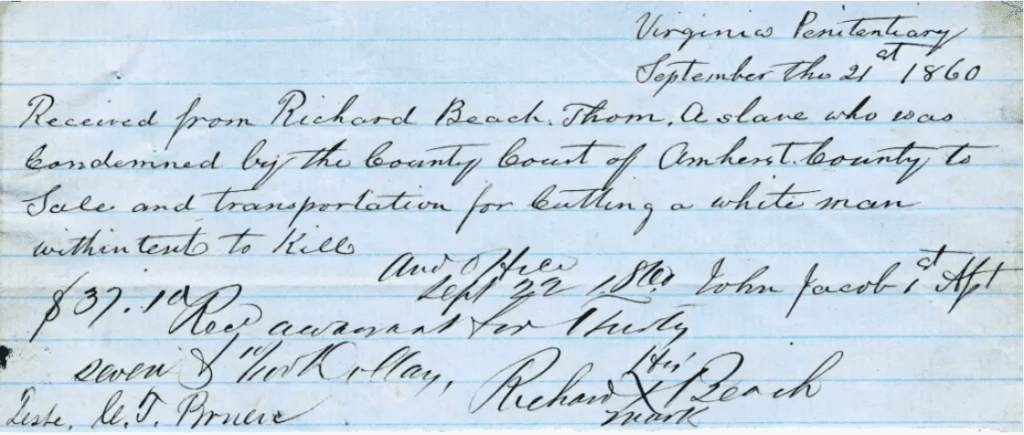 Virginia Penitentiary
September the 21st 1860
Received from Richard Beach. Thom, a slave who was
Condemned by the County Court of Amherst County to
Sale and transportation for Cutting a white man
withintent to Kill
John Jacob 1st Asst
Aud Office
Sept 22 1860
$37.10
Recd a warrant for Thirty
seven & 10/100 Dollars,
Richard His X mark Beach
Teste,